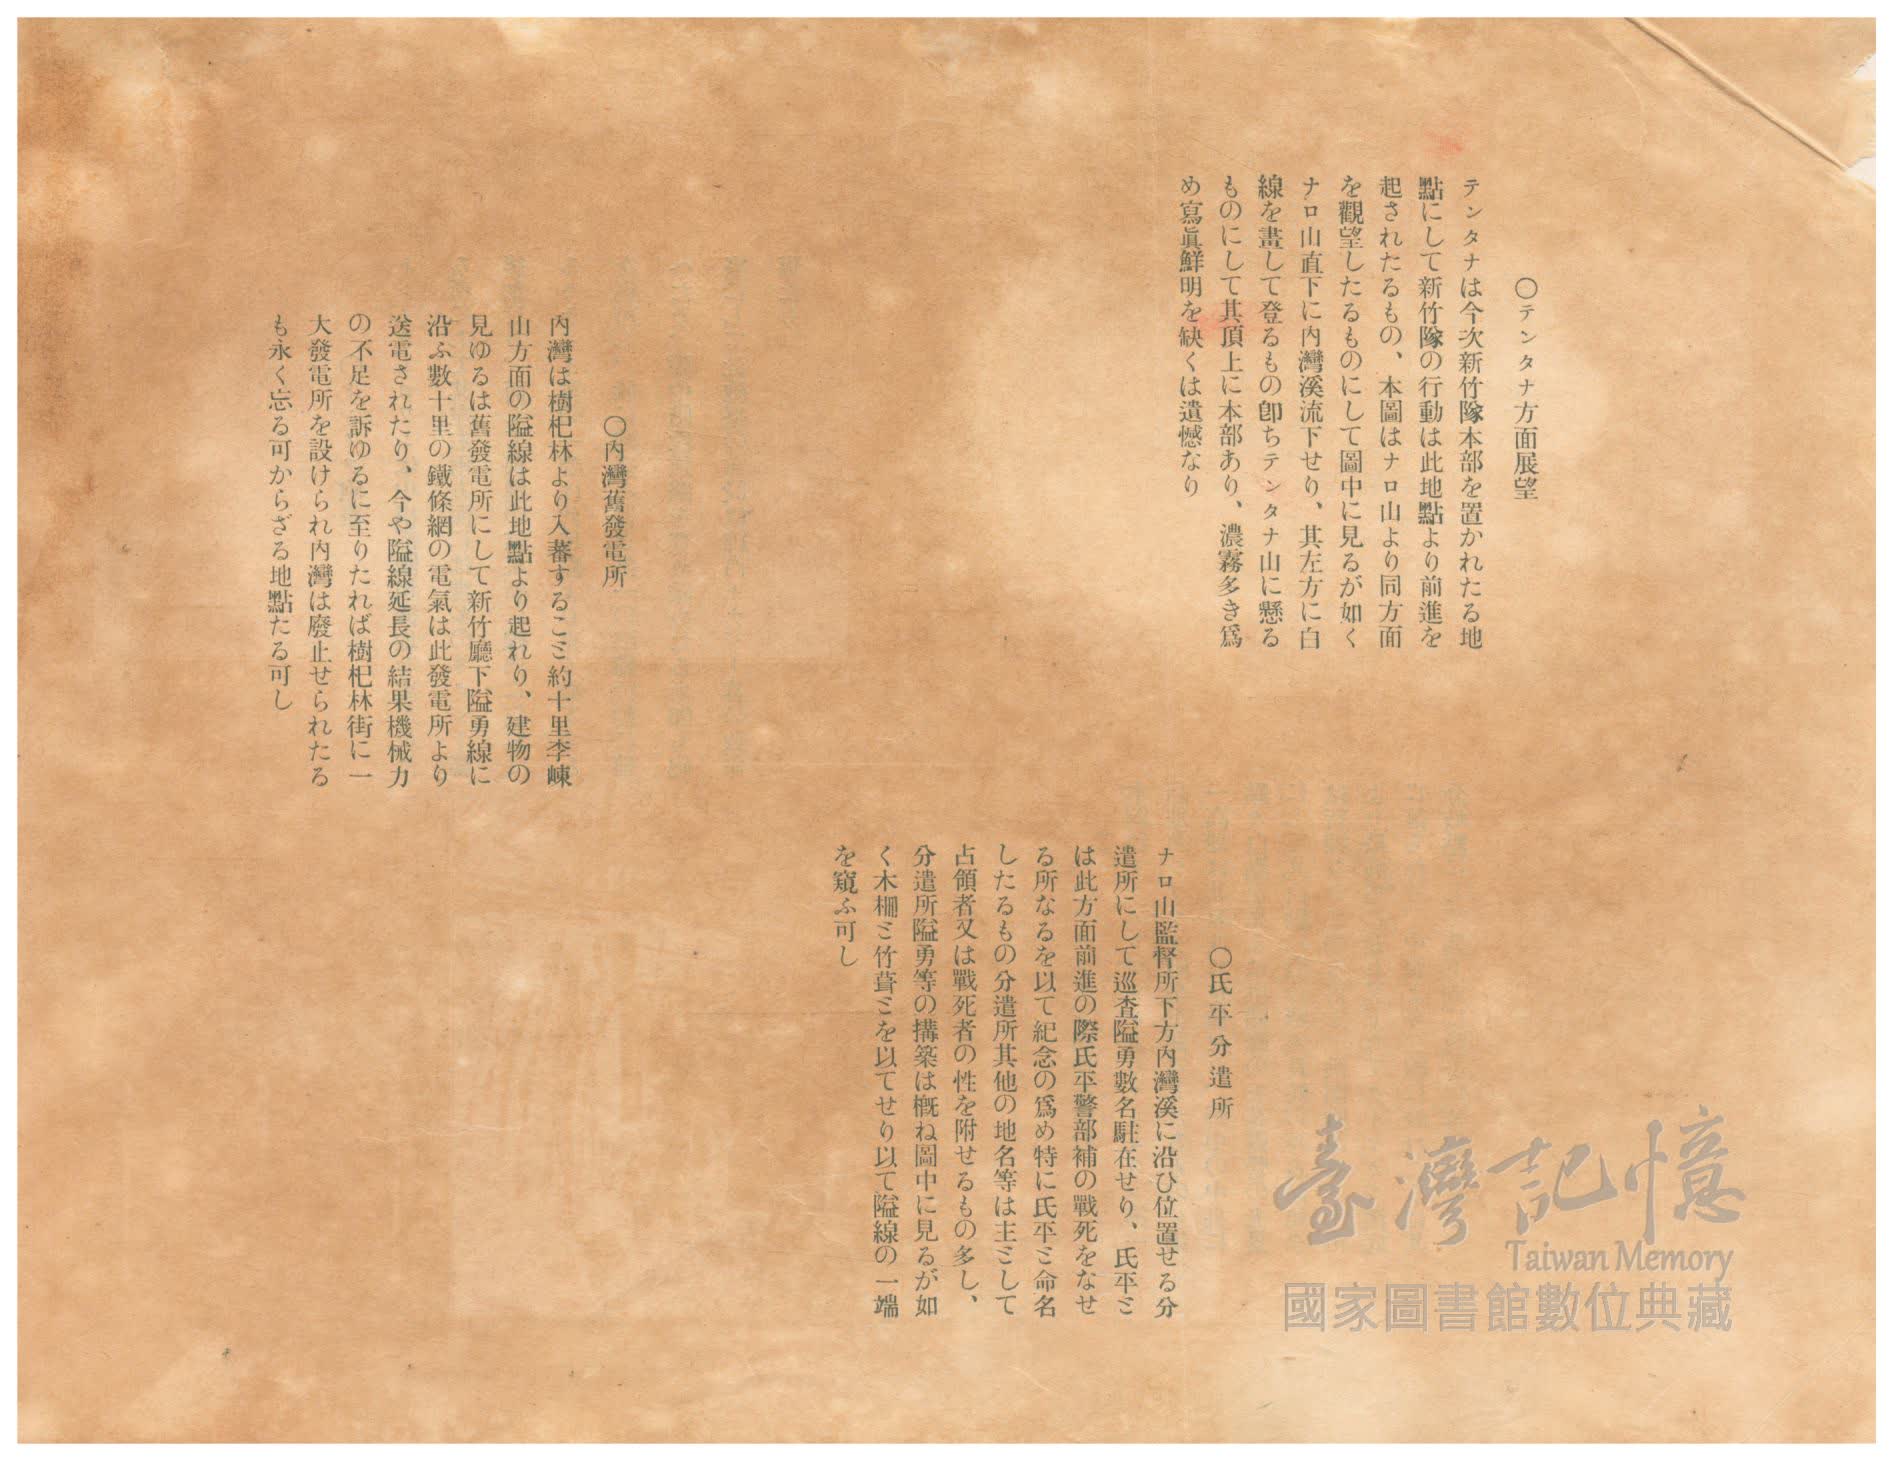 〇テンタナ方面展望
テンタナは今次新竹隊本部を置かれたる地
點にして新竹隊の行動は此地點より前進を
起されたるもの、本圖はナロ山より同方面
を觀望したるものにして圖中に見るが如く
ナロ山直下に內灣溪流下せり、其左方に白
線を畫して登るもの卽ちテンタナ山に懸る
ものにして其頂上に本部あり、濃霧多き爲
め寫眞鮮明を缺くは遺憾なり
〇氏平分遣所
ナロ山監督所下方內灣溪に沿ひ位置せる分
遣所にして巡査隘勇數名駐在せり、氏平ミ
は此方面前進の際氏平警部補の戰死をなせ
る所なるを以て紀念の爲め特に氏平ミ命名
したるもの分遣所其他の地名等は主ミして
占領者又は戰死者の性を附せるもの多し、
分遣所隘勇等の搆築は槪ね圖中に見るが如
く木柵ミ竹葺ミを以てせり以て隘線の一端
を窺ふ可し
〇內灣舊發電所
內灣は樹杞林より入蕃するこミ約十里李崠
山方面の隘線は此地點より起れり、建物の
見ゆるは舊發電所にして新竹廳下隘勇線に
沿ふ數十里の鐵條網の電氣は此發電所より
送電されたり、今や隘線延長の結果機械力
の不足を訴ゆるに至りたれば樹杞林街に一
大發電所を設けられ內灣は廢止せられたる
も永く忘る可からざる地點たる可し
臺灣記憶
Taiwan Memory
國家圖書館數位典藏